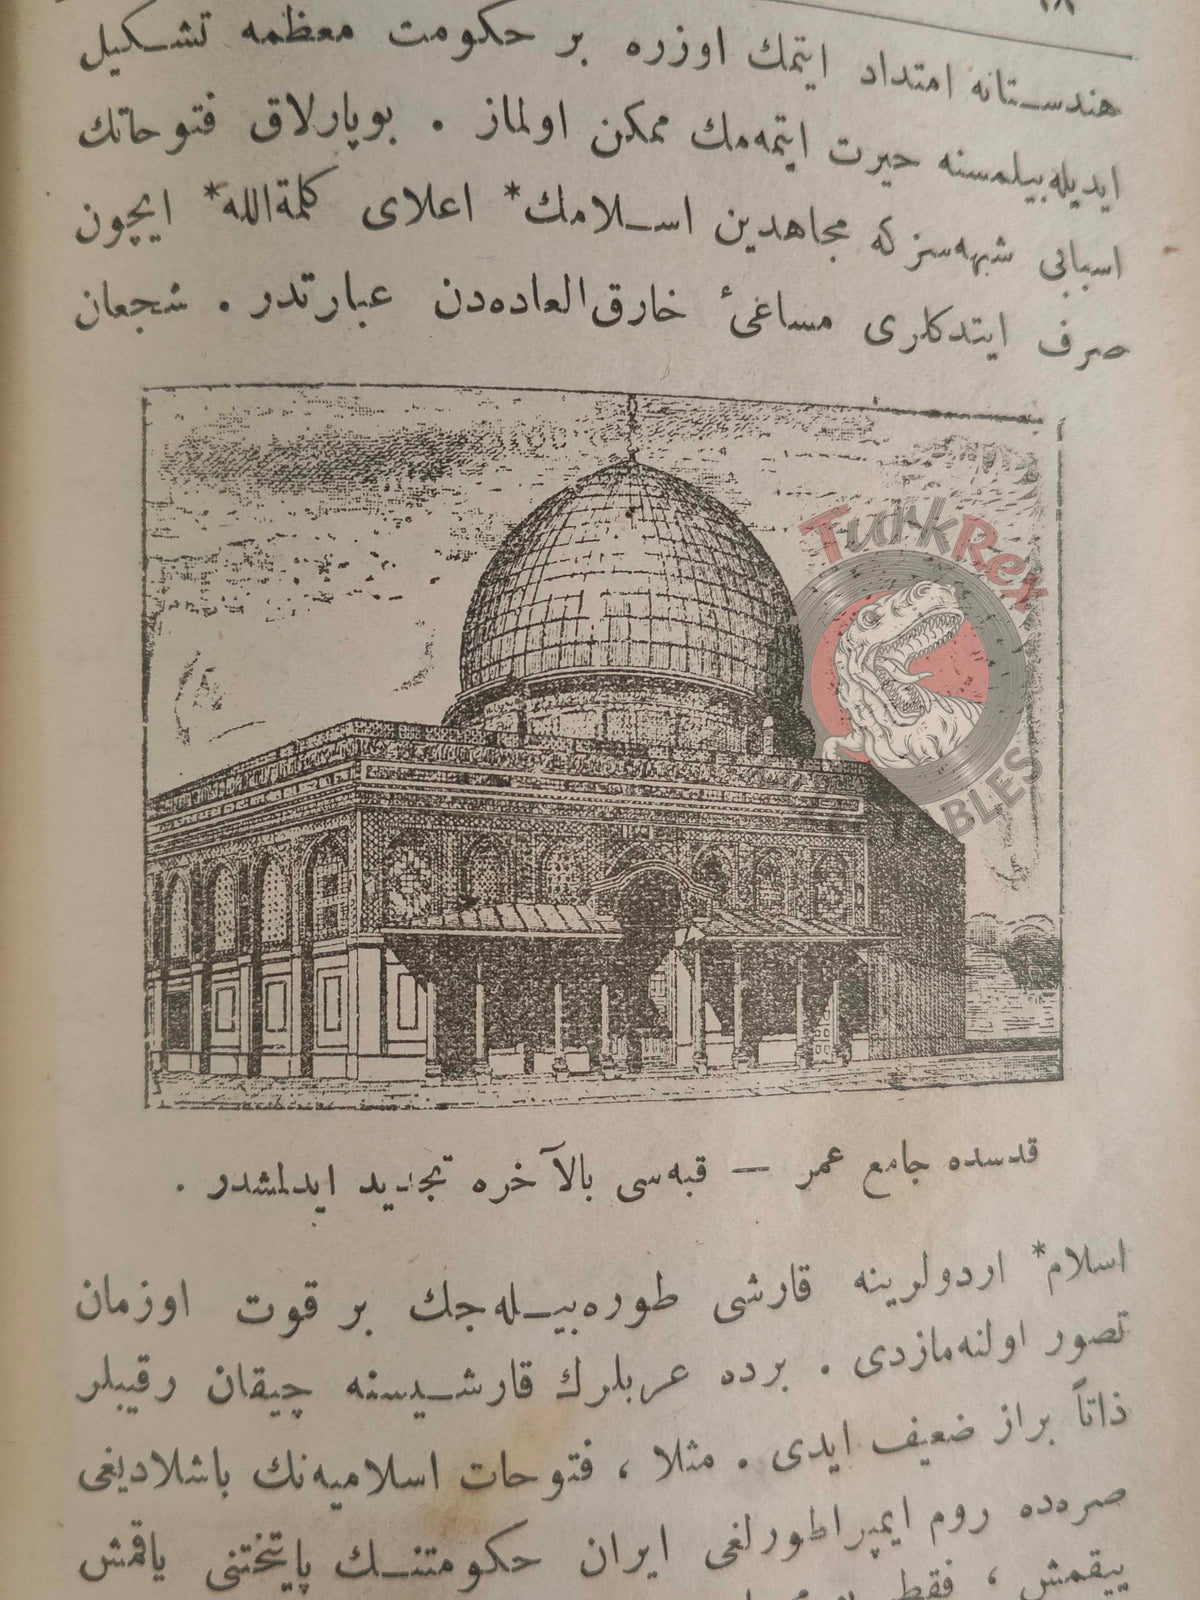 ١٨
هندستانه امتداد ايتمك اوزره بر حكومت معظمه تشكيل
ايديله‌بيلمسنه حيرت ايتمه‌مك ممكن اولماز . بوپارلاق فتوحاتك
اسبابى شبهه‌سزكه مجاهدين اسلامك* اعلاى كلمةالله* ايچون
صرف ايتدكلرى مساغىٔ خارق‌العاده‌دن عبارتدر . شجعان
TurkRex
BLES
قدسده جامع عمر — قبه‌سى بالآخره تجديد ايدلمشدر .
اسلام* اردولرينه قارشى طوره‌بيله‌جك بر قوت اوزمان
تصور اولنه‌مازدى . برده عربلرك قارشيسنه چيقان رقيبلر
ذاتاً براز ضعيف ايدى . مثلا ، فتوحات اسلاميه‌نك باشلاديغى
صره‌ده روم ايمپراطورلغى ايران حكومتنك پايتختنى ياقمش
ييقمش ، فقط